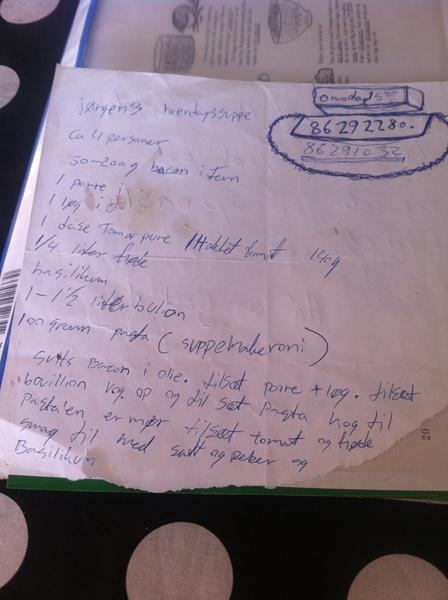 jørgens hverdagssuppe
onsdag
86292280.
86291032
ca 4 personer
50-200g bacon i tern
1 porre i
1 løg i
1 dåse Tomat pure / Hakket tomat 140g
1/4 liter fløde
basilikum
1-1½ liter bulion
100 gram pasta (suppemakeroni)
Svits Bacon i olie. tilsæt porre + løg. tilsæt
bouillion kog op og til sæt pasta kog til
pasta'en er mør tilsæt tomat og fløde
smag til med salt og peber og
Basilikum
20